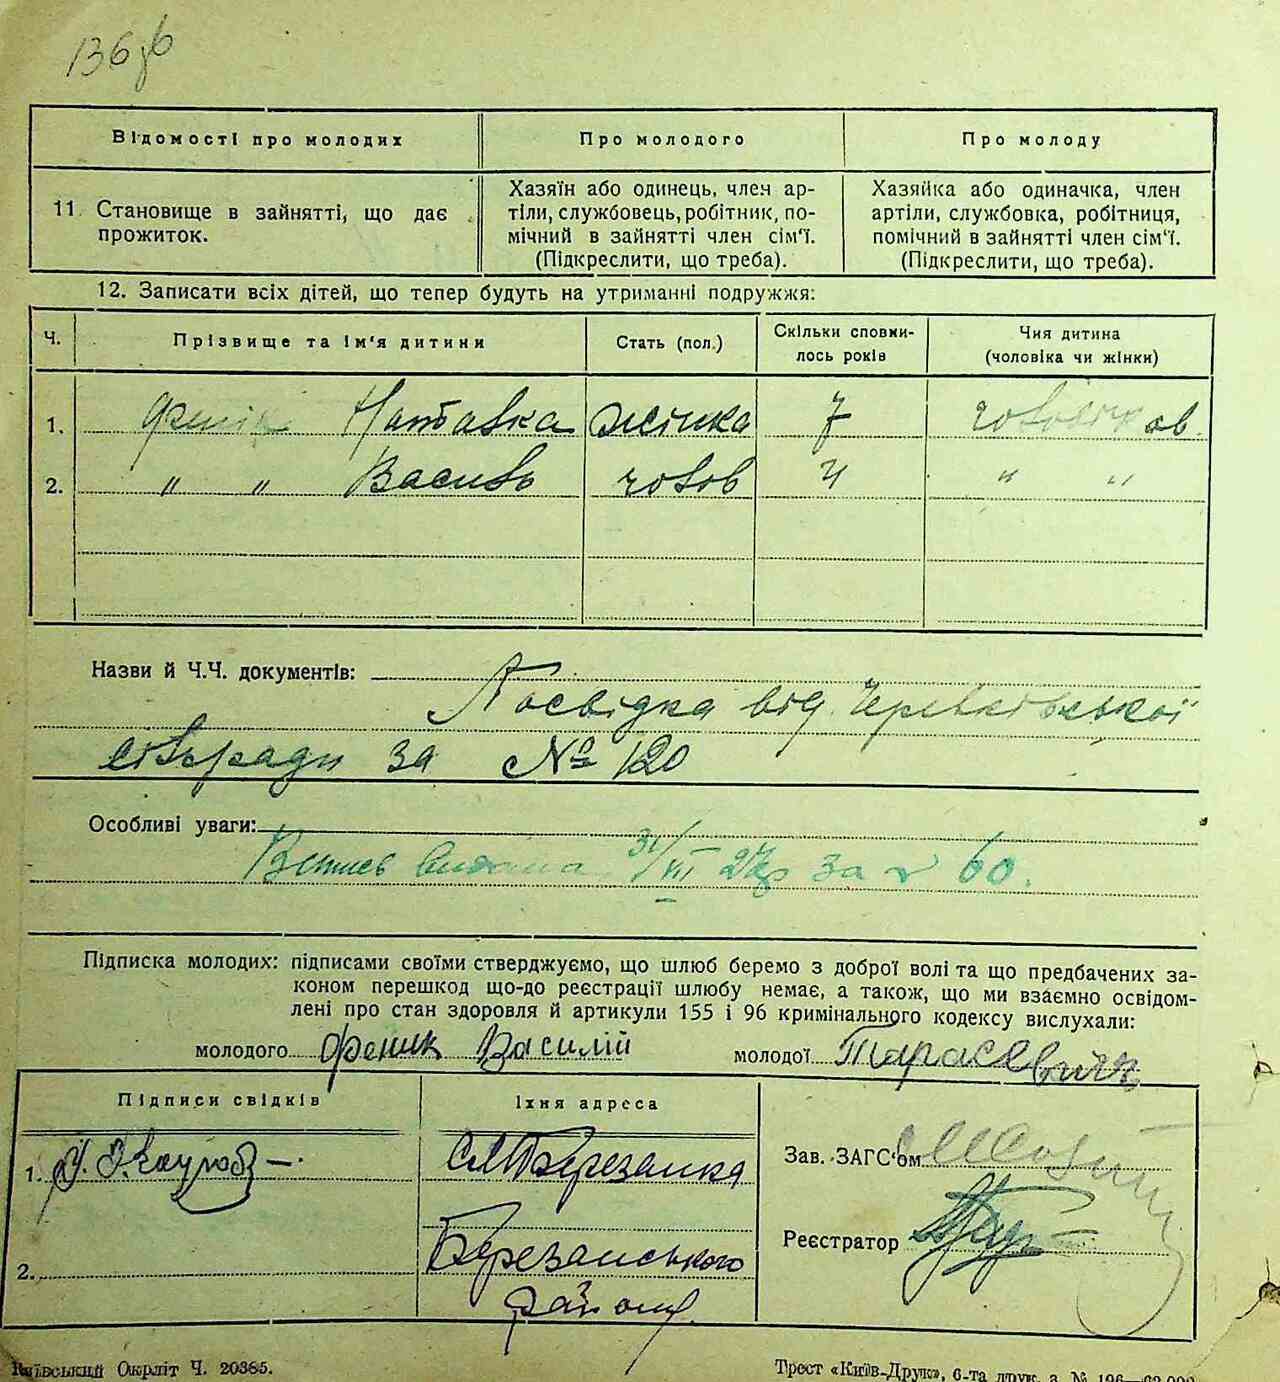 136
Відомості про молодих Про молодого Про молоду
11. Становище в зайнятті, що дає прожиток.
Хазяїн або одинець, член ар-
тіли, службовець, робітник, по-
мічний в зайнятті член сім'ї.
(Підкреслити, що треба).
Хазяйка або одиначка, член
артіли, службовка, робітниця,
помічний в зайнятті член сім'ї.
(Підкреслити, що треба).
12. Записати всіх дітей, що тепер будуть на утриманні подружжя:
Ч. Прізвище та ім'я дитини Стать (пол.) Скільки сповни-
лось років Чия дитина
(чоловіка чи жінки)
1. Феник Наталка жінка 7
2. " " Василь чолов 4 " "
Назви й Ч.Ч. документів:
Посвідка від
сільради за № 120
Особливі уваги:
видана 31/VII 27р за № 60.
Підписка молодих: підписами своїми стверджуємо, що шлюб беремо з доброї волі та що предбачених за-
коном перешкод що-до реєстрації шлюбу немає, а також, що ми взаємно освідом-
лені про стан здоровля й артикули 155 і 96 кримінального кодексу вислухали:
молодого Феник Василій молодої Тарасевич
Підписи свідків Їхня адреса
1. См Березанка
Березанського
2. району
Зав. ЗАГС'ом
Реєстратор
Київський Окрліт Ч. 20385.
Трест «Київ-Друк», 6-та друк. з. № 196—62.000